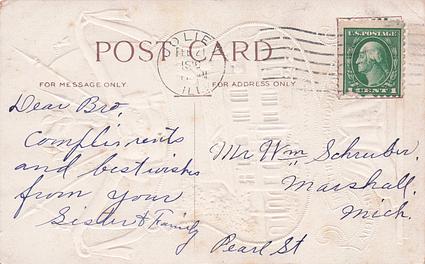 POST CARD
FOR MESSAGE ONLY
FOR ADDRESS ONLY
ILL.
U.S. POSTAGE
1 CENT 1
Dear Bro,
Compliments
and best wishes
from your
Sister & Family
Mr Wm Schruber,
Marshall,
Mich.
Pearl St